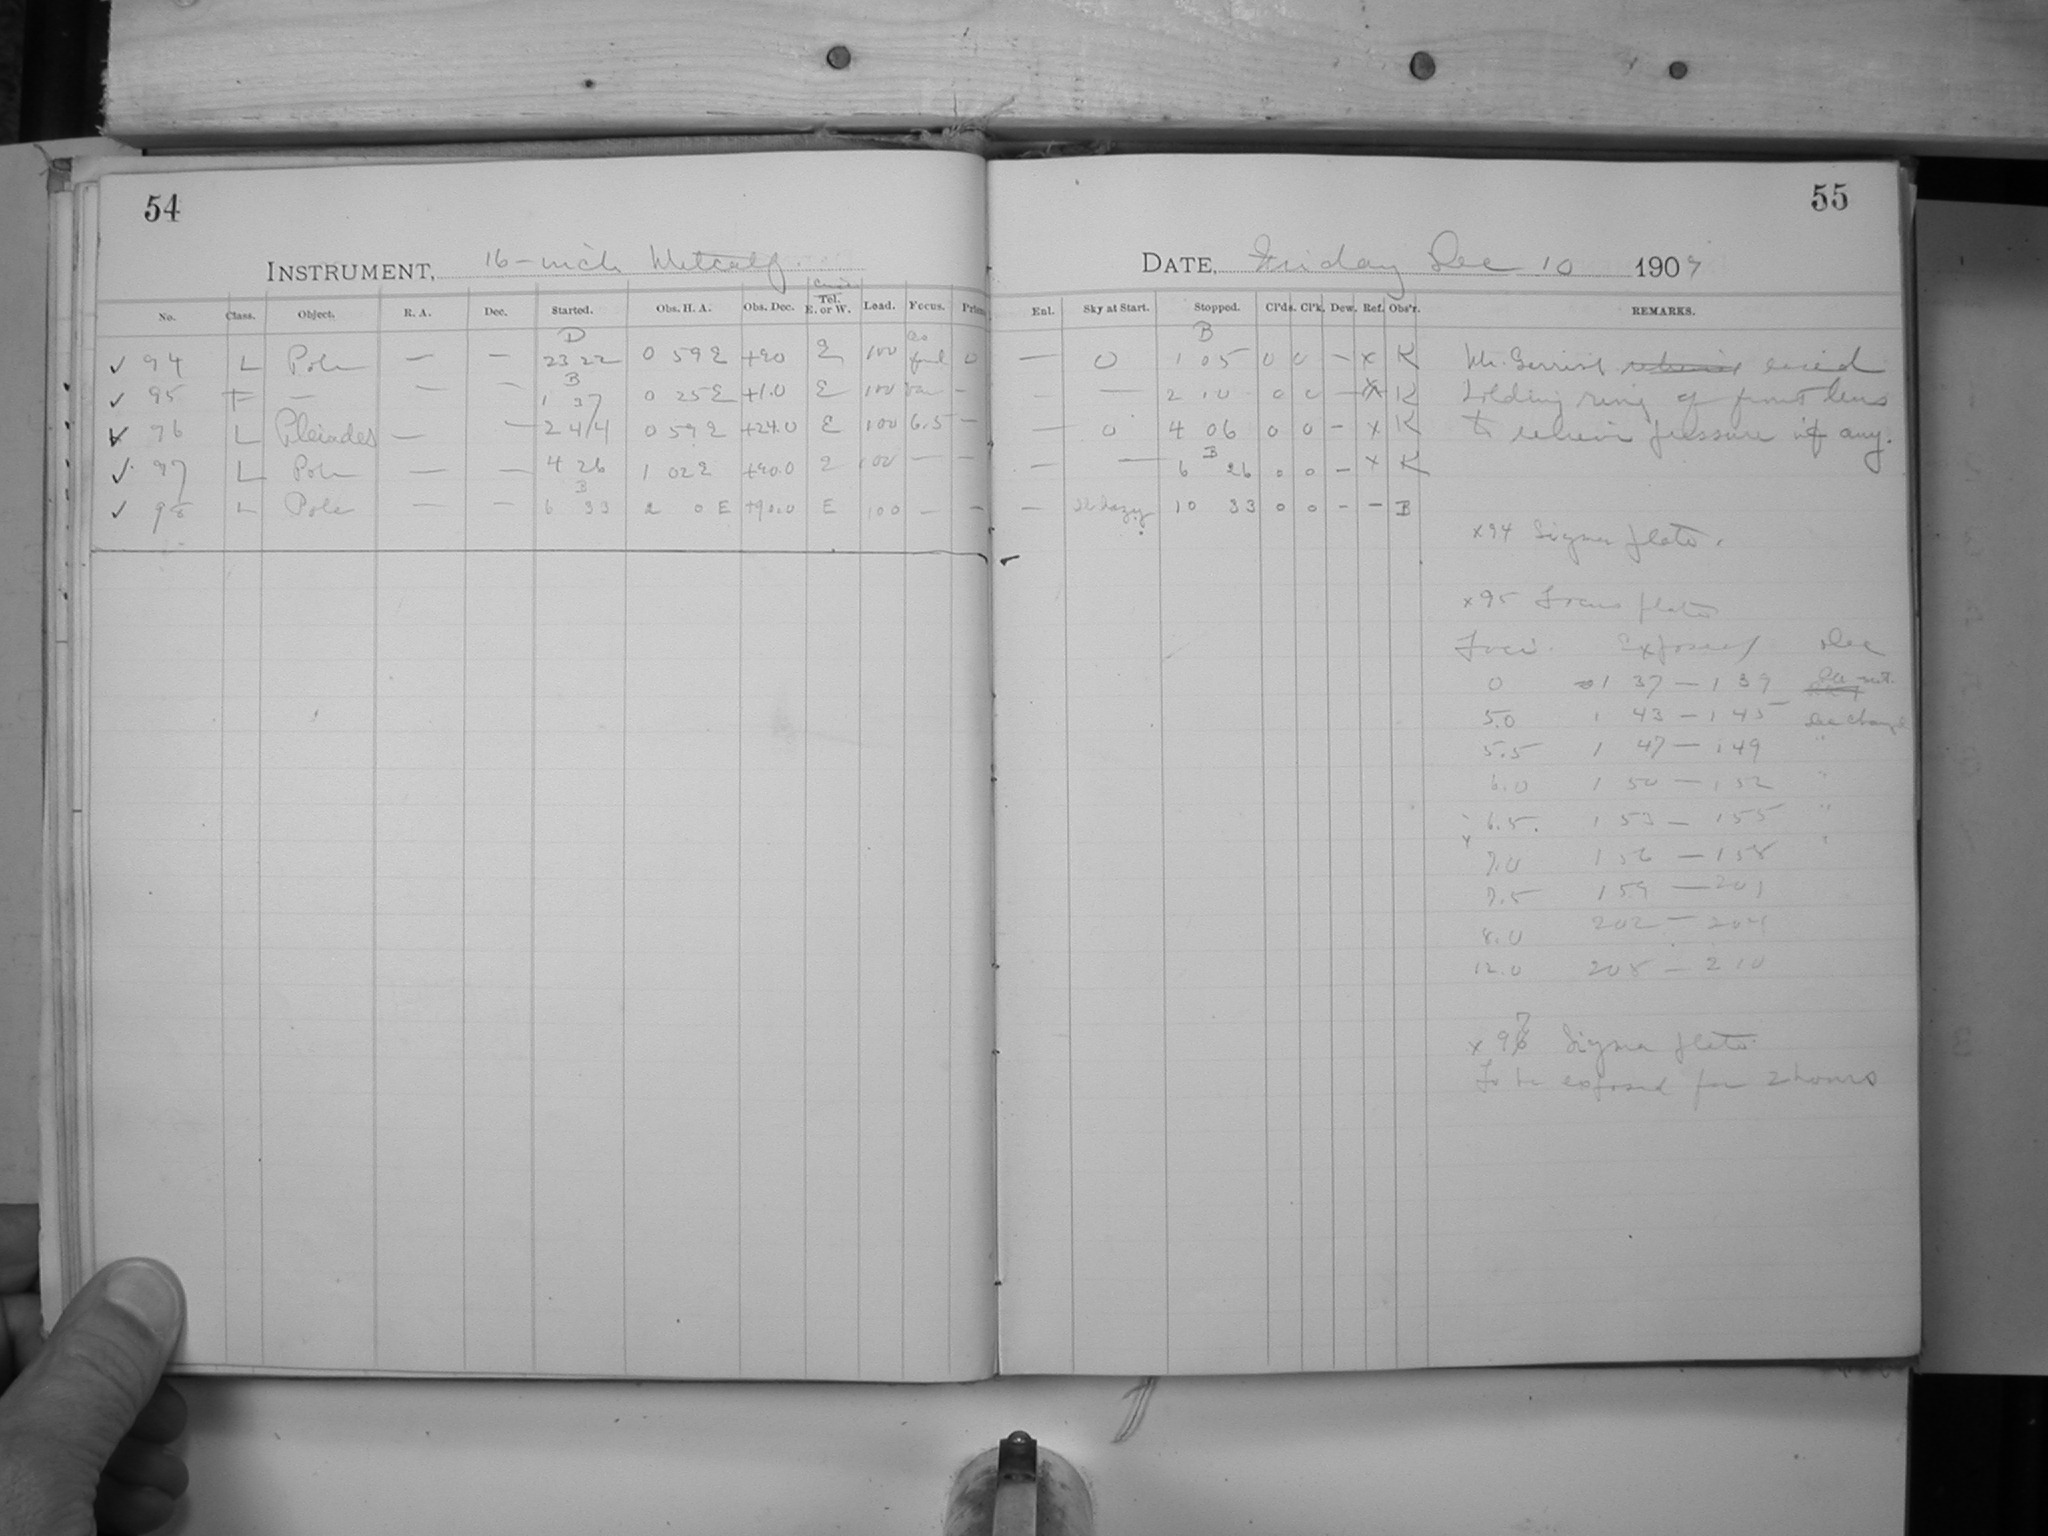 54
INSTRUMENT, 16-inch Metcalf.
No. Class. Object. R. A. Dec. Started. Obs. H. A. Obs. Dec. Tel. E. or W. Lead. Focus. Prism
D
✓ 94 L Pole — — 23 22 0 59 E +90 E 100 0
B
✓ 95 F — — — 1 37 0 25 E +1.0 E 100 Var —
✓ 96 L Pleiades — — 2 44 0 59 E +24.0 E 100 6.5 —
✓ 97 L Pole — — 4 26 1 02 E +90.0 E 100 — —
B
✓ 98 L Pole — — 6 33 2 0 E +90.0 E 100 — —
55
DATE, Friday Dec 10 1909
Enl. Sky at Start. Stopped. Cl'ds. Cl'k. Dew. Ref. Obs'r. REMARKS.
B
— 0 1 05 0 0 — x K Mr. Gerrish eased
— — 2 10 0 0 — x K holding ring of front lens
— 0 4 06 0 0 — x K to relieve pressure if any.
B
— — 6 26 0 0 — x K
— hazy 10 33 0 0 — — B
x94 Sigma plate.
x95 Focus plate
Foci. Exposed Dec
0 1 37 — 1 39
5.0 1 43 — 1 45 Dec change
5.5 1 47 — 1 49 "
6.0 1 50 — 1 52 "
6.5. 1 53 — 1 55 "
7.0 1 56 — 1 58 "
7.5 1 59 — 2 01
8.0 2 02 — 2 04
12.0 2 08 — 2 10
x 97 Sigma plate
To be exposed for 2 hours